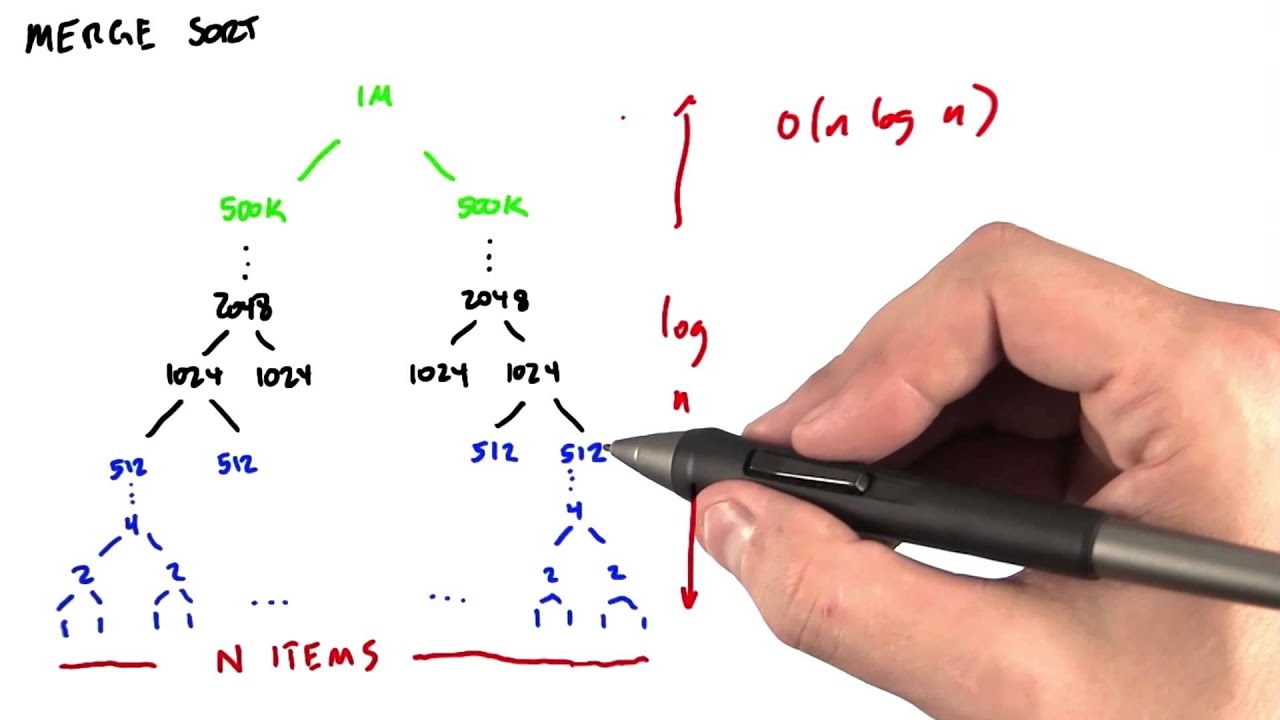 MERGE SORT
1M
O(n log n)
500K 500K
⋮ ⋮
2048 2048
log
n
1024 1024 1024 1024
512 512 512 512
⋮ ⋮
4 4
2 2 2 2
1 1 1 1 ... ... 1 1 1 1
N ITEMS